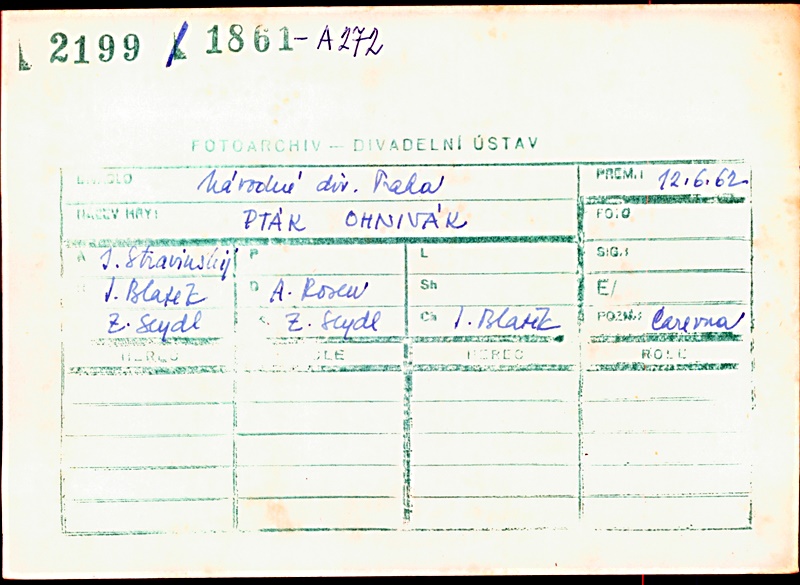 2199 / 1861-A272
FOTOARCHIV — DIVADELNÍ ÚSTAV
DIVADLO Národné div. Praha PREM.: 12.6.62
NÁZEV HRY: PTÁK OHNIVÁK FOTO
A I. Stravinský P L SIG.:
I. Blažek D A. Rosen Sh E/
Z. Seydl K Z. Seydl Ch I. Blažek POZN.: Carevna
HEREC ROLE HEREC ROLE